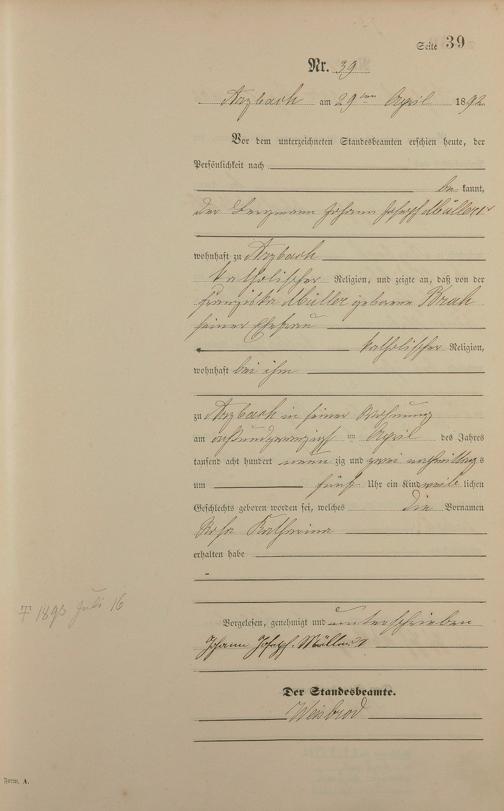 Seite 39
Nr. 39
Arzbach am 29ten April 1892
Vor dem unterzeichneten Standesbeamten erschien heute, der
Persönlichkeit nach
be kannt,
der Bergmann Johann Joseph Müller
wohnhaft zu Arzbach
katholischer Religion, und zeigte an, daß von der
Franziska Müller geborene Brah
seiner Ehefrau
katholischer Religion,
wohnhaft bei ihm
zu Arzbach in seiner Wohnung
am achtundzwanzigsten April des Jahres
tausend acht hundert neun zig und zwei nachmittags
um fünf Uhr ein Kind weib lichen
Geschlechts geboren worden sei, welches die Vornamen
Rosa Katharina
erhalten habe
† 1893 Juli 16
Vorgelesen, genehmigt und unterschrieben
Johann Joseph Müller
Der Standesbeamte.
Weisbrod
Form. A.